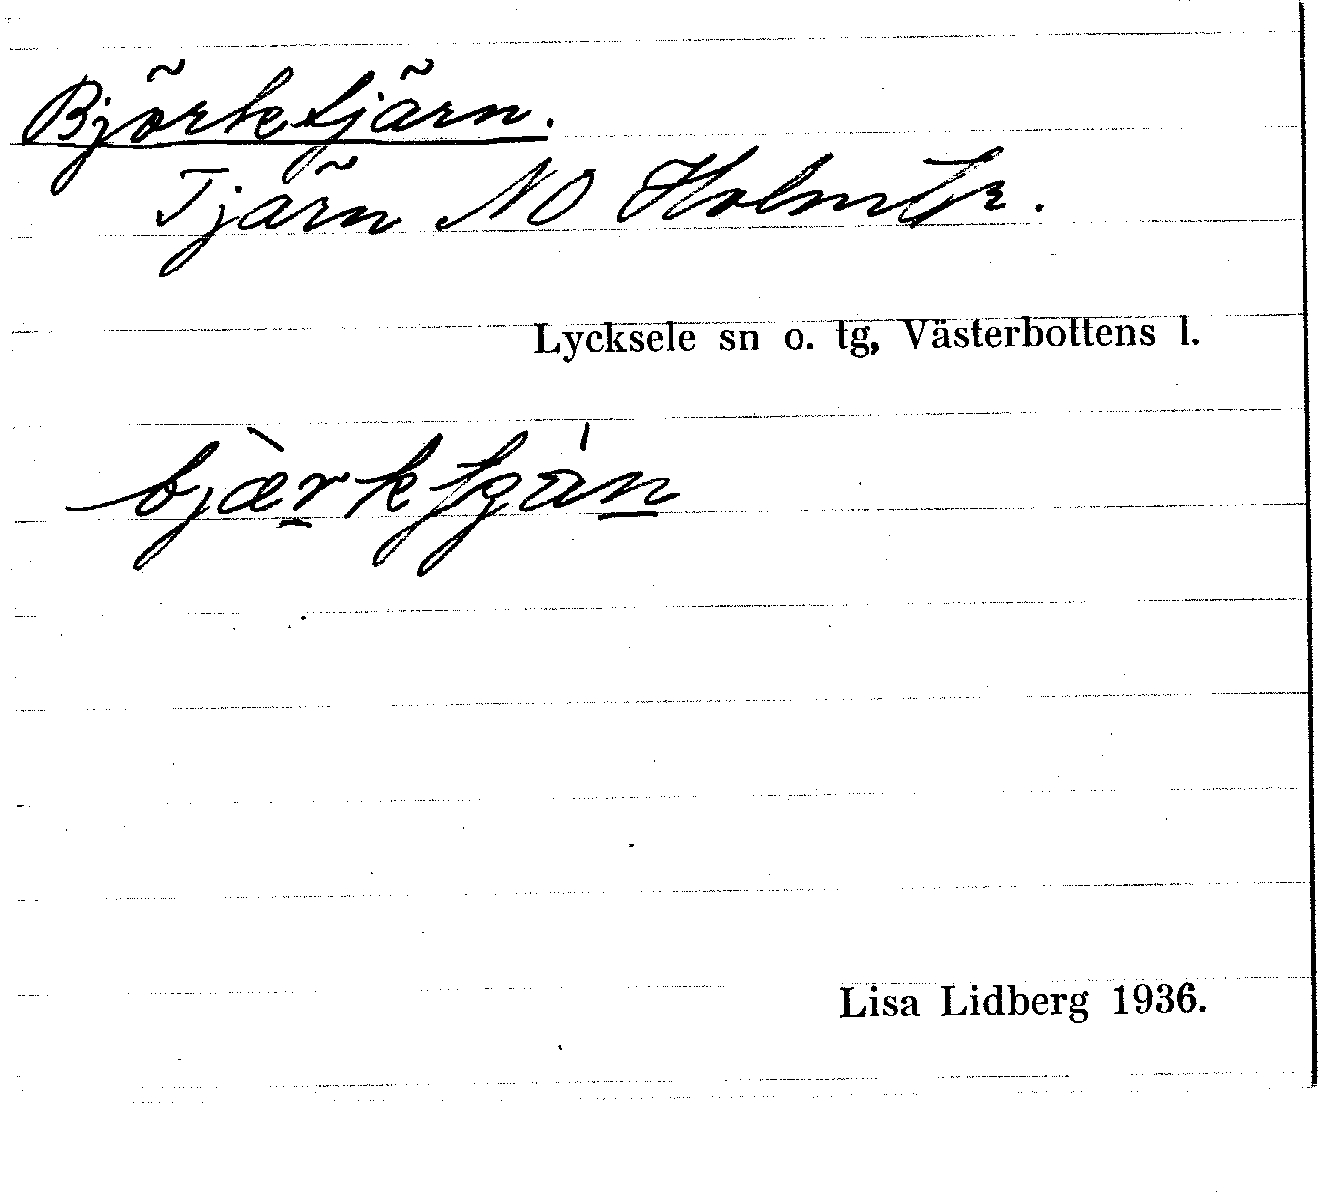 Björktjärn.
Tjärn NO Holmtr.
Lycksele sn o. tg, Västerbottens l.
Lisa Lidberg 1936.